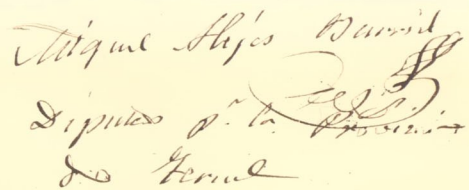 Miguel Alejos Burriel
Diputado pr. la Provincia
de Teruel